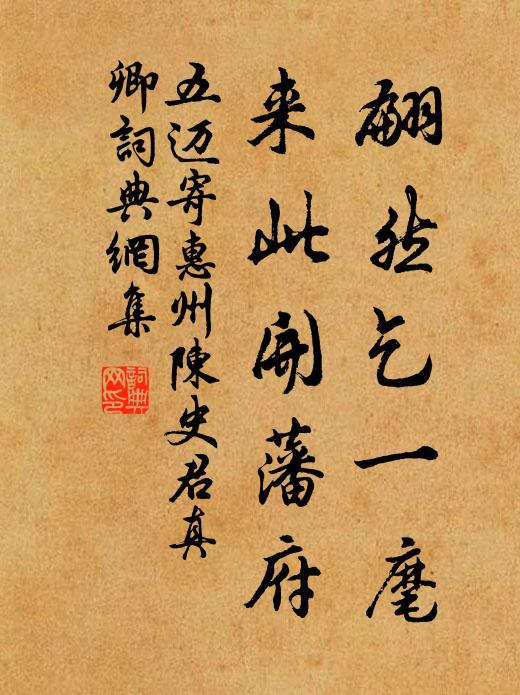 翩然乞一麾
来此開藩府
五迈寄惠州陳史君真
卿詞典網集
詞典
网印